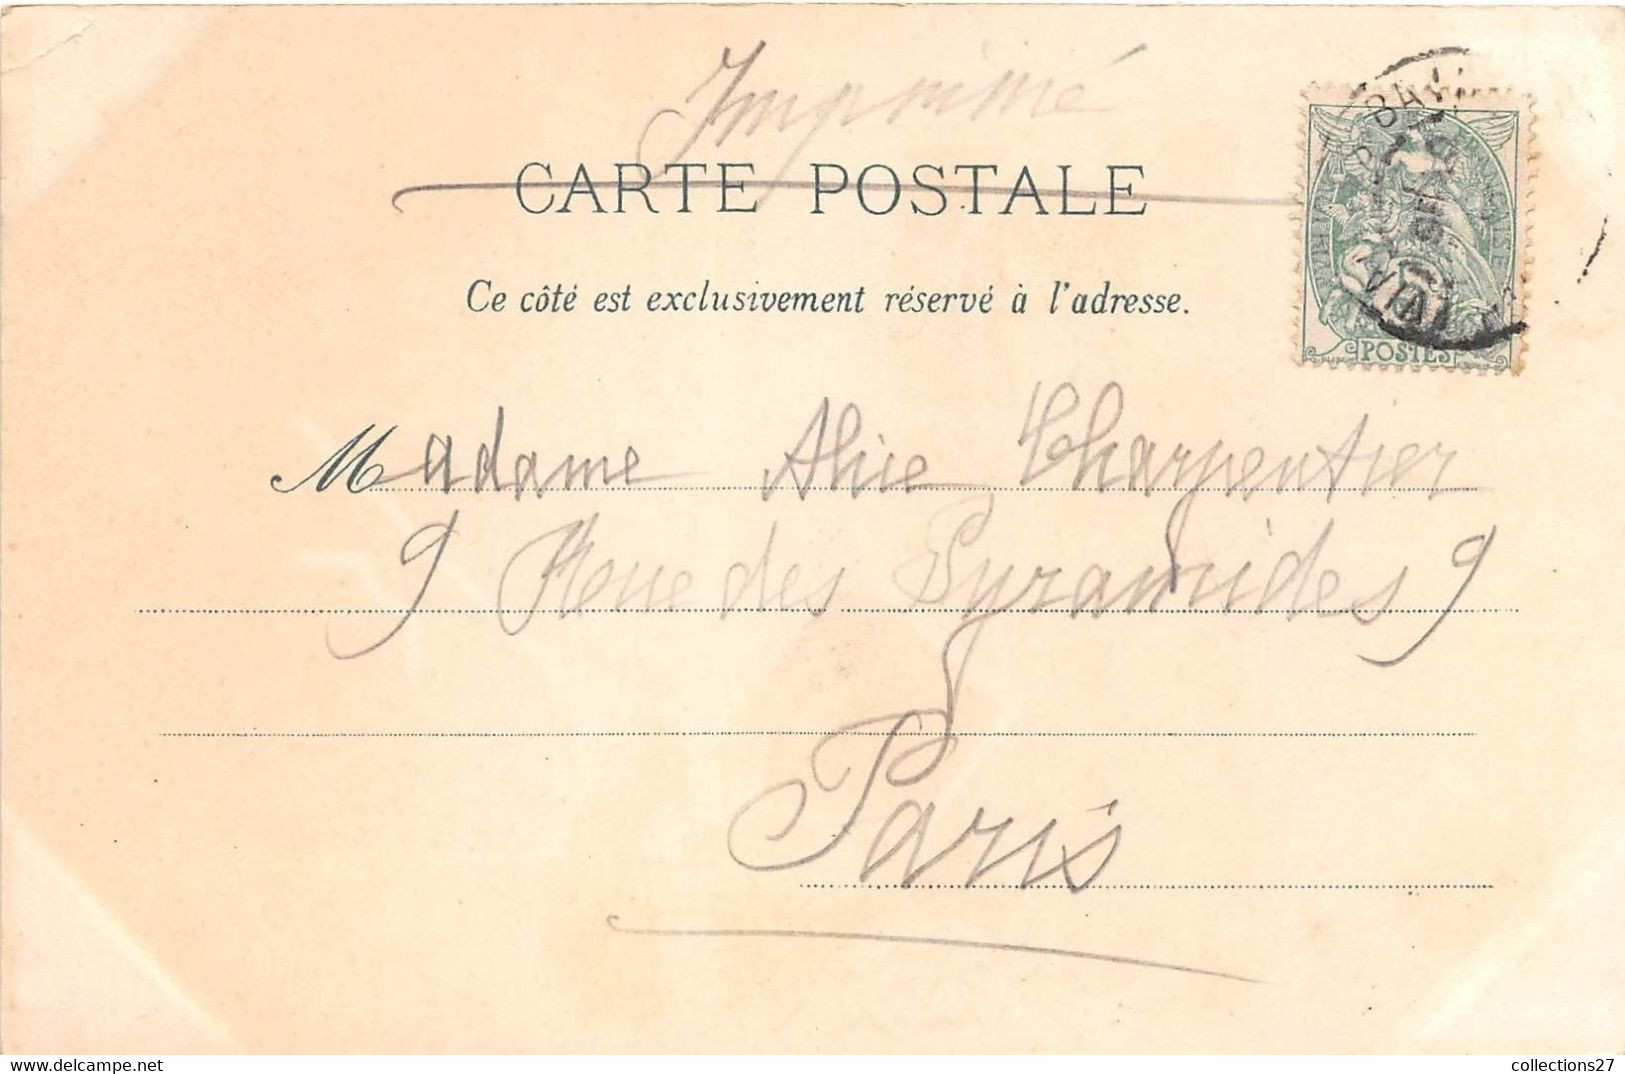 Imprimé
CARTE POSTALE
Ce côté est exclusivement réservé à l'adresse.
POSTES
Madame Alice Charpentier
9 Rue des Pyramides 9
Paris
www.delcampe.net
collections27